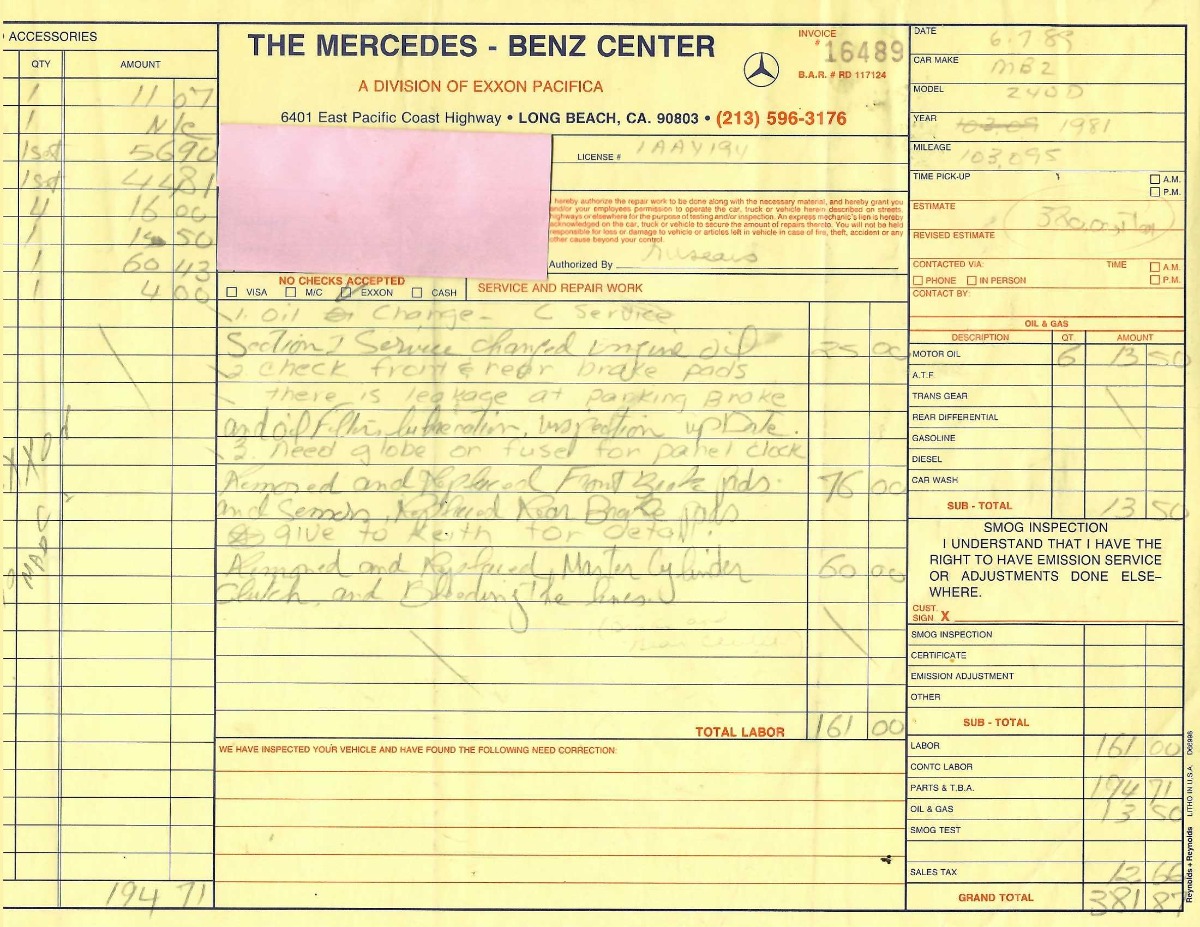 ACCESSORIES
QTY AMOUNT
1 11 07
1 N/C
1set 56 90
1set 44 81
4 16 00
1 1 50
1 60 43
1 4 00
194 71
THE MERCEDES - BENZ CENTER
A DIVISION OF EXXON PACIFICA
6401 East Pacific Coast Highway • LONG BEACH, CA. 90803 • (213) 596-3176
INVOICE
# 16489
B.A.R. # RD 117124
LICENSE # 1AAY194
hereby authorize the repair work to be done along with the necessary material, and hereby grant you
and/or your employees permission to operate the car, truck or vehicle herein described on streets,
highways or elsewhere for the purpose of testing and/or inspection. An express mechanic's lien is hereby
acknowledged on the car, truck or vehicle to secure the amount of repairs thereto. You will not be held
responsible for loss or damage to vehicle or articles left in vehicle in case of fire, theft, accident or any
other cause beyond your control.
Authorized By
NO CHECKS ACCEPTED
VISA M/C EXXON CASH
SERVICE AND REPAIR WORK
1. Oil Change - C Service
Section I Service changed engine oil 25 00
2 check front & rear brake pads
there is leakage at parking Brake
and oil Filter, lubrication, inspection upDate.
3. need globe or fuse for panel clock
Removed and Replaced Front Brake pads. 76 00
and Sensors, Replaced Rear Brake pads
give to Keith for detail.
Removed and Replaced Master Cylinder 60 00
Clutch, and Bleeding the lines.
TOTAL LABOR 161 00
WE HAVE INSPECTED YOUR VEHICLE AND HAVE FOUND THE FOLLOWING NEED CORRECTION:
DATE 6-7-89
CAR MAKE MBZ
MODEL 240D
YEAR 1981
MILEAGE 103,095
TIME PICK-UP A.M.
P.M.
ESTIMATE
REVISED ESTIMATE
CONTACTED VIA: TIME A.M.
PHONE IN PERSON P.M.
CONTACT BY:
OIL & GAS
DESCRIPTION QT. AMOUNT
MOTOR OIL 6 13 50
A.T.F.
TRANS GEAR
REAR DIFFERENTIAL
GASOLINE
DIESEL
CAR WASH
SUB - TOTAL 13 50
SMOG INSPECTION
I UNDERSTAND THAT I HAVE THE
RIGHT TO HAVE EMISSION SERVICE
OR ADJUSTMENTS DONE ELSE-
WHERE.
CUST.
SIGN X
SMOG INSPECTION
CERTIFICATE
EMISSION ADJUSTMENT
OTHER
SUB - TOTAL
LABOR 161 00
CONTC LABOR
PARTS & T.B.A. 194 71
OIL & GAS 13 50
SMOG TEST
SALES TAX 12 66
GRAND TOTAL 381 87
Reynolds + Reynolds LITHO IN U.S.A. D66996